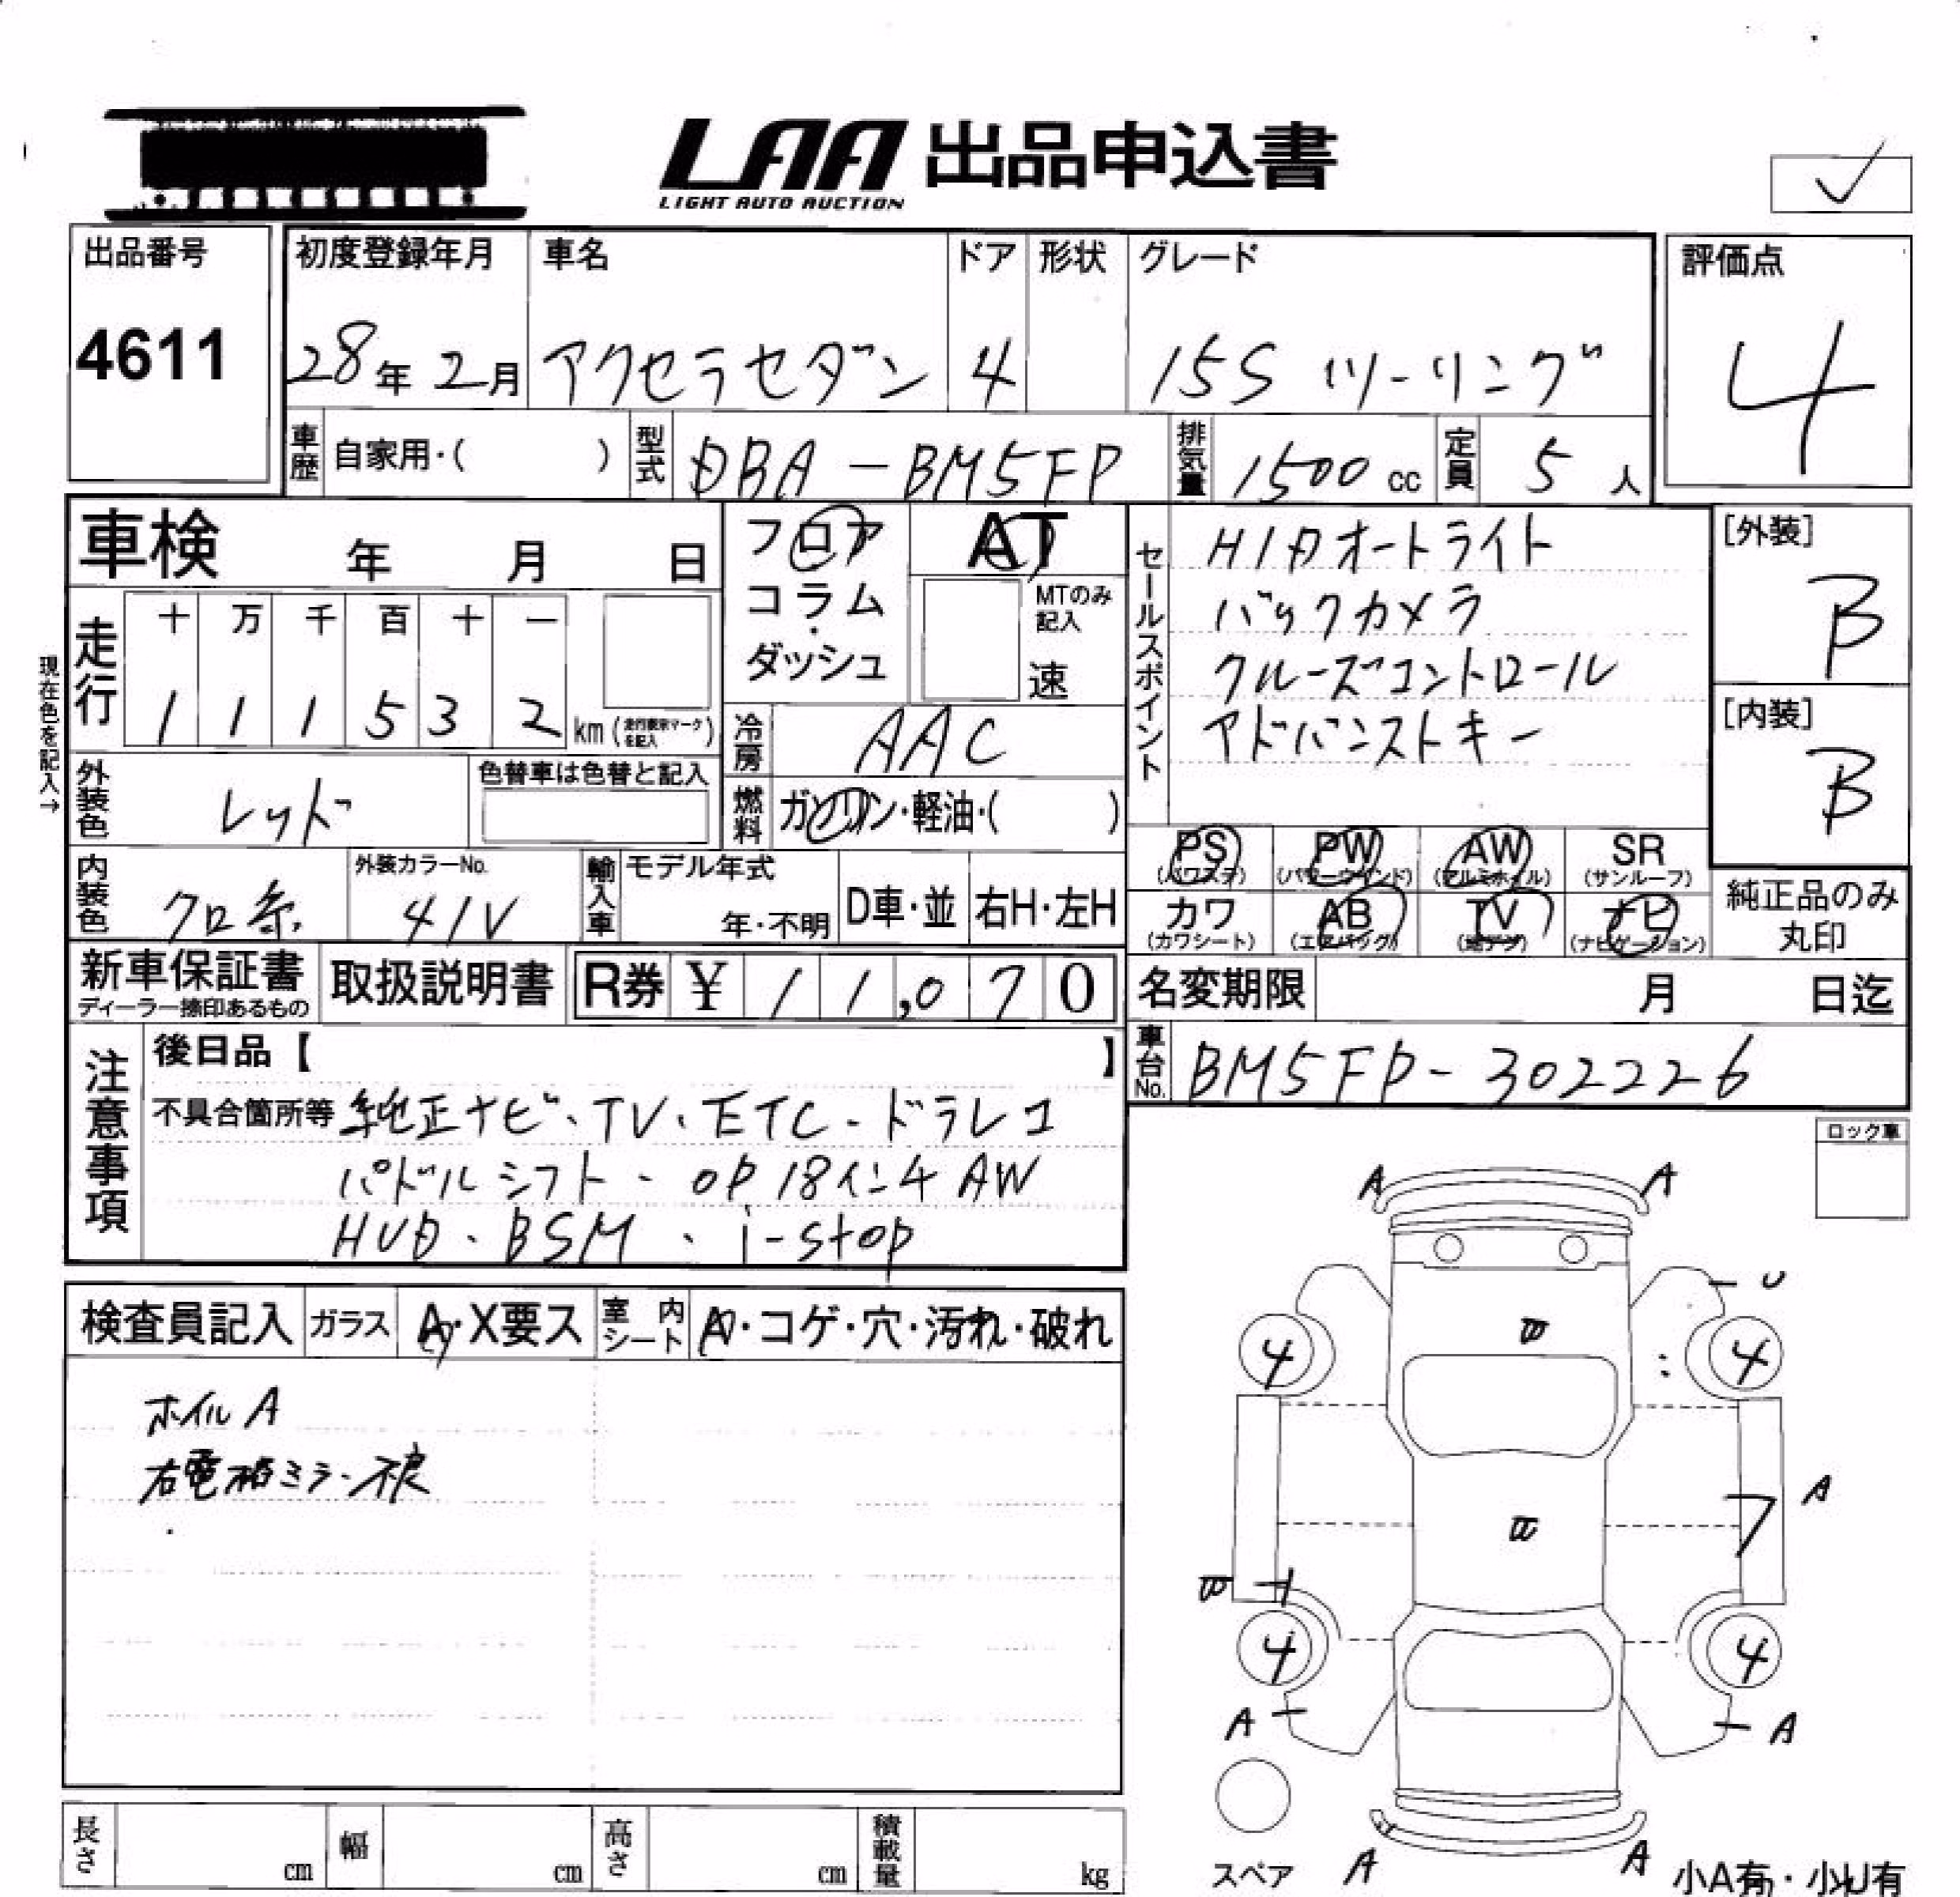 LAA 出品申込書
LIGHT AUTO AUCTION
✓
出品番号
4611
初度登録年月
28年 2月
車名
アクセラセダン
ドア
4
形状
グレード
15S ツーリング
評価点
4
車歴 自家用・( )
型式 DBA-BM5FP
排気量 1500 cc
定員 5 人
車検 年 月 日
フロア
コラム
・
ダッシュ
AT
MTのみ記入
速
セールスポイント
HIDオートライト
バックカメラ
クルーズコントロール
アドバンストキー
[外装]
B
[内装]
B
現在色を記入→
走行
十 万 千 百 十 一
1 1 1 5 3 2 km (走行表示マークを記入)
冷房 AAC
外装色 レッド
色替車は色替と記入
燃料 ガソリン・軽油・( )
内装色 クロ系
外装カラーNo.
41V
輸入車
モデル年式
年・不明
D車・並
右H・左H
PS (パワステ)
PW (パワーウインド)
AW (アルミホイル)
SR (サンルーフ)
カワ (カワシート)
AB (エアバッグ)
TV (地デジ)
ナビ (ナビゲーション)
純正品のみ
丸印
新車保証書
ディーラー捺印あるもの
取扱説明書
R券 ¥ 11,070
名変期限 月 日迄
車台No. BM5FP-302226
注意事項
後日品【 】
不具合箇所等 純正ナビ・TV・ETC・ドラレコ
パドルシフト・OP18インチAW
HUD・BSM・i-stop
ロック車
検査員記入
ガラス A・X要ス
室内シート A・コゲ・穴・汚れ・破れ
ホイルA
右電格ミラー不良
A A
U
4 4
A
4 4
A A
スペア
A A
小A有・小U有
長さ cm
幅 cm
高さ cm
積載量 kg